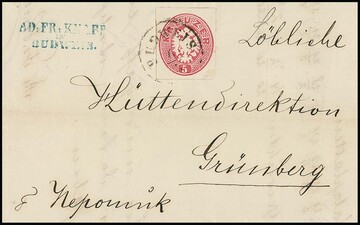 AD: FR: KNAPP
IN
BUDWEIS.
BUDWEIS
KREUZER
5
Löbliche
Hüttendirektion
Grünberg
Nepomuk